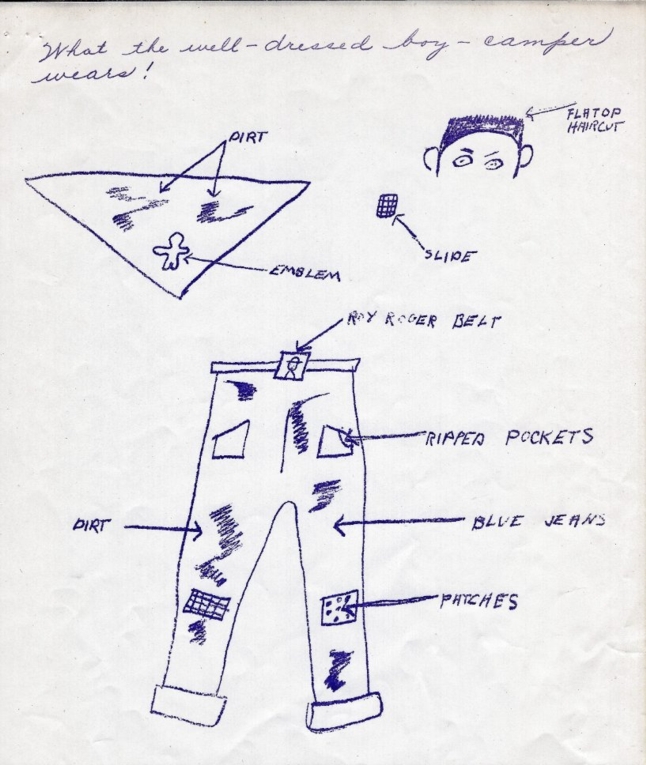 What the well-dressed boy-camper
wears!
DIRT
FLATOP
HAIRCUT
SLIDE
EMBLEM
ROY ROGER BELT
RIPPED POCKETS
DIRT
BLUE JEANS
PATCHES